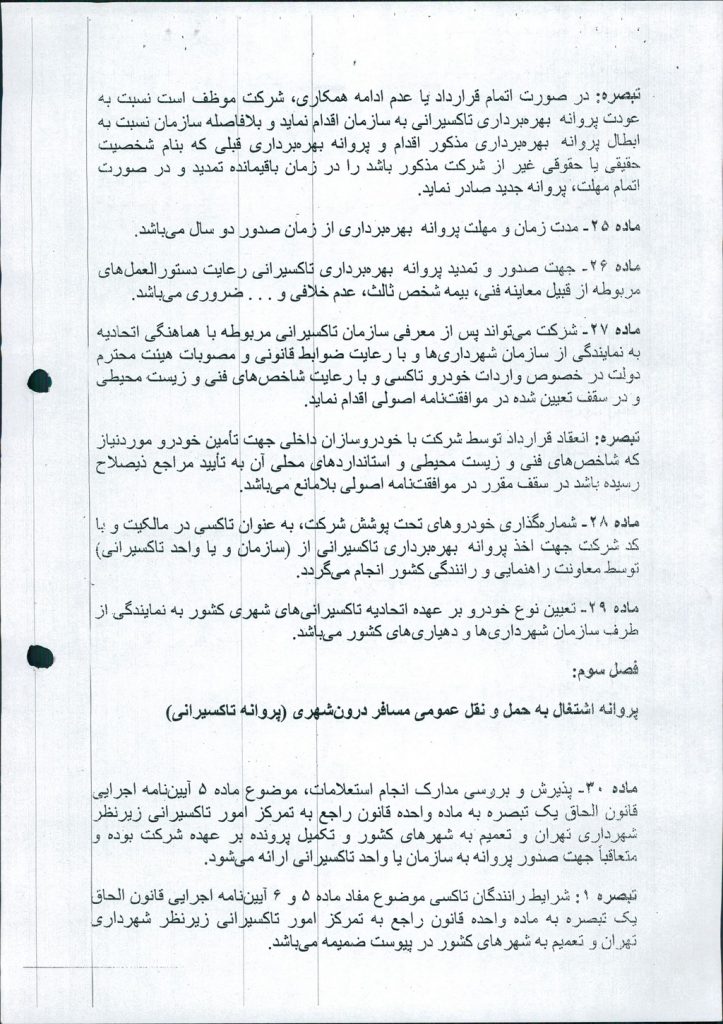 تبصره: در صورت اتمام قرارداد یا عدم ادامه همکاری، شرکت موظف است نسبت به
عودت پروانه بهره‌برداری تاکسیرانی به سازمان اقدام نماید و بلافاصله سازمان نسبت به
ابطال پروانه بهره‌برداری مذکور اقدام و پروانه بهره‌برداری قبلی که بنام شخصیت
حقیقی یا حقوقی غیر از شرکت مذکور باشد را در زمان باقیمانده تمدید و در صورت
اتمام مهلت، پروانه جدید صادر نماید.
ماده ۲۵- مدت زمان و مهلت پروانه بهره‌برداری از زمان صدور دو سال می‌باشد.
ماده ۲۶- جهت صدور و تمدید پروانه بهره‌برداری تاکسیرانی رعایت دستورالعمل‌های
مربوطه از قبیل معاینه فنی، بیمه شخص ثالث، عدم خلافی و ... ضروری می‌باشد.
ماده ۲۷- شرکت می‌تواند پس از معرفی سازمان تاکسیرانی مربوطه با هماهنگی اتحادیه
به نمایندگی از سازمان شهرداری‌ها و با رعایت ضوابط قانونی و مصوبات هیئت محترم
دولت در خصوص واردات خودرو تاکسی و با رعایت شاخص‌های فنی و زیست محیطی
و در سقف تعیین شده در موافقت‌نامه اصولی اقدام نماید.
تبصره: انعقاد قرارداد توسط شرکت با خودروسازان داخلی جهت تأمین خودرو موردنیاز
که شاخص‌های فنی و زیست محیطی و استانداردهای محلی آن به تأیید مراجع ذیصلاح
رسیده باشد در سقف مقرر در موافقت‌نامه اصولی بلامانع می‌باشد.
ماده ۲۸- شماره‌گذاری خودروهای تحت پوشش شرکت، به عنوان تاکسی در مالکیت و با
کد شرکت جهت اخذ پروانه بهره‌برداری تاکسیرانی از (سازمان و یا واحد تاکسیرانی)
توسط معاونت راهنمایی و رانندگی کشور انجام می‌گردد.
ماده ۲۹- تعیین نوع خودرو بر عهده اتحادیه تاکسیرانی‌های شهری کشور به نمایندگی از
طرف سازمان شهرداری‌ها و دهیاری‌های کشور می‌باشد.
فصل سوم:
پروانه اشتغال به حمل و نقل عمومی مسافر درون‌شهری (پروانه تاکسیرانی)
ماده ۳۰- پذیرش و بررسی مدارک انجام استعلامات، موضوع ماده ۵ آیین‌نامه اجرایی
قانون الحاق یک تبصره به ماده واحده قانون راجع به تمرکز امور تاکسیرانی زیرنظر
شهرداری تهران و تعمیم به شهرهای کشور و تکمیل پرونده بر عهده شرکت بوده و
متعاقباً جهت صدور پروانه به سازمان یا واحد تاکسیرانی ارائه می‌شود.
تبصره ۱: شرایط رانندگان تاکسی موضوع مفاد ماده ۵ و ۶ آیین‌نامه اجرایی قانون الحاق
یک تبصره به ماده واحده قانون راجع به تمرکز امور تاکسیرانی زیرنظر شهرداری
تهران و تعمیم به شهرهای کشور در پیوست ضمیمه می‌باشد.